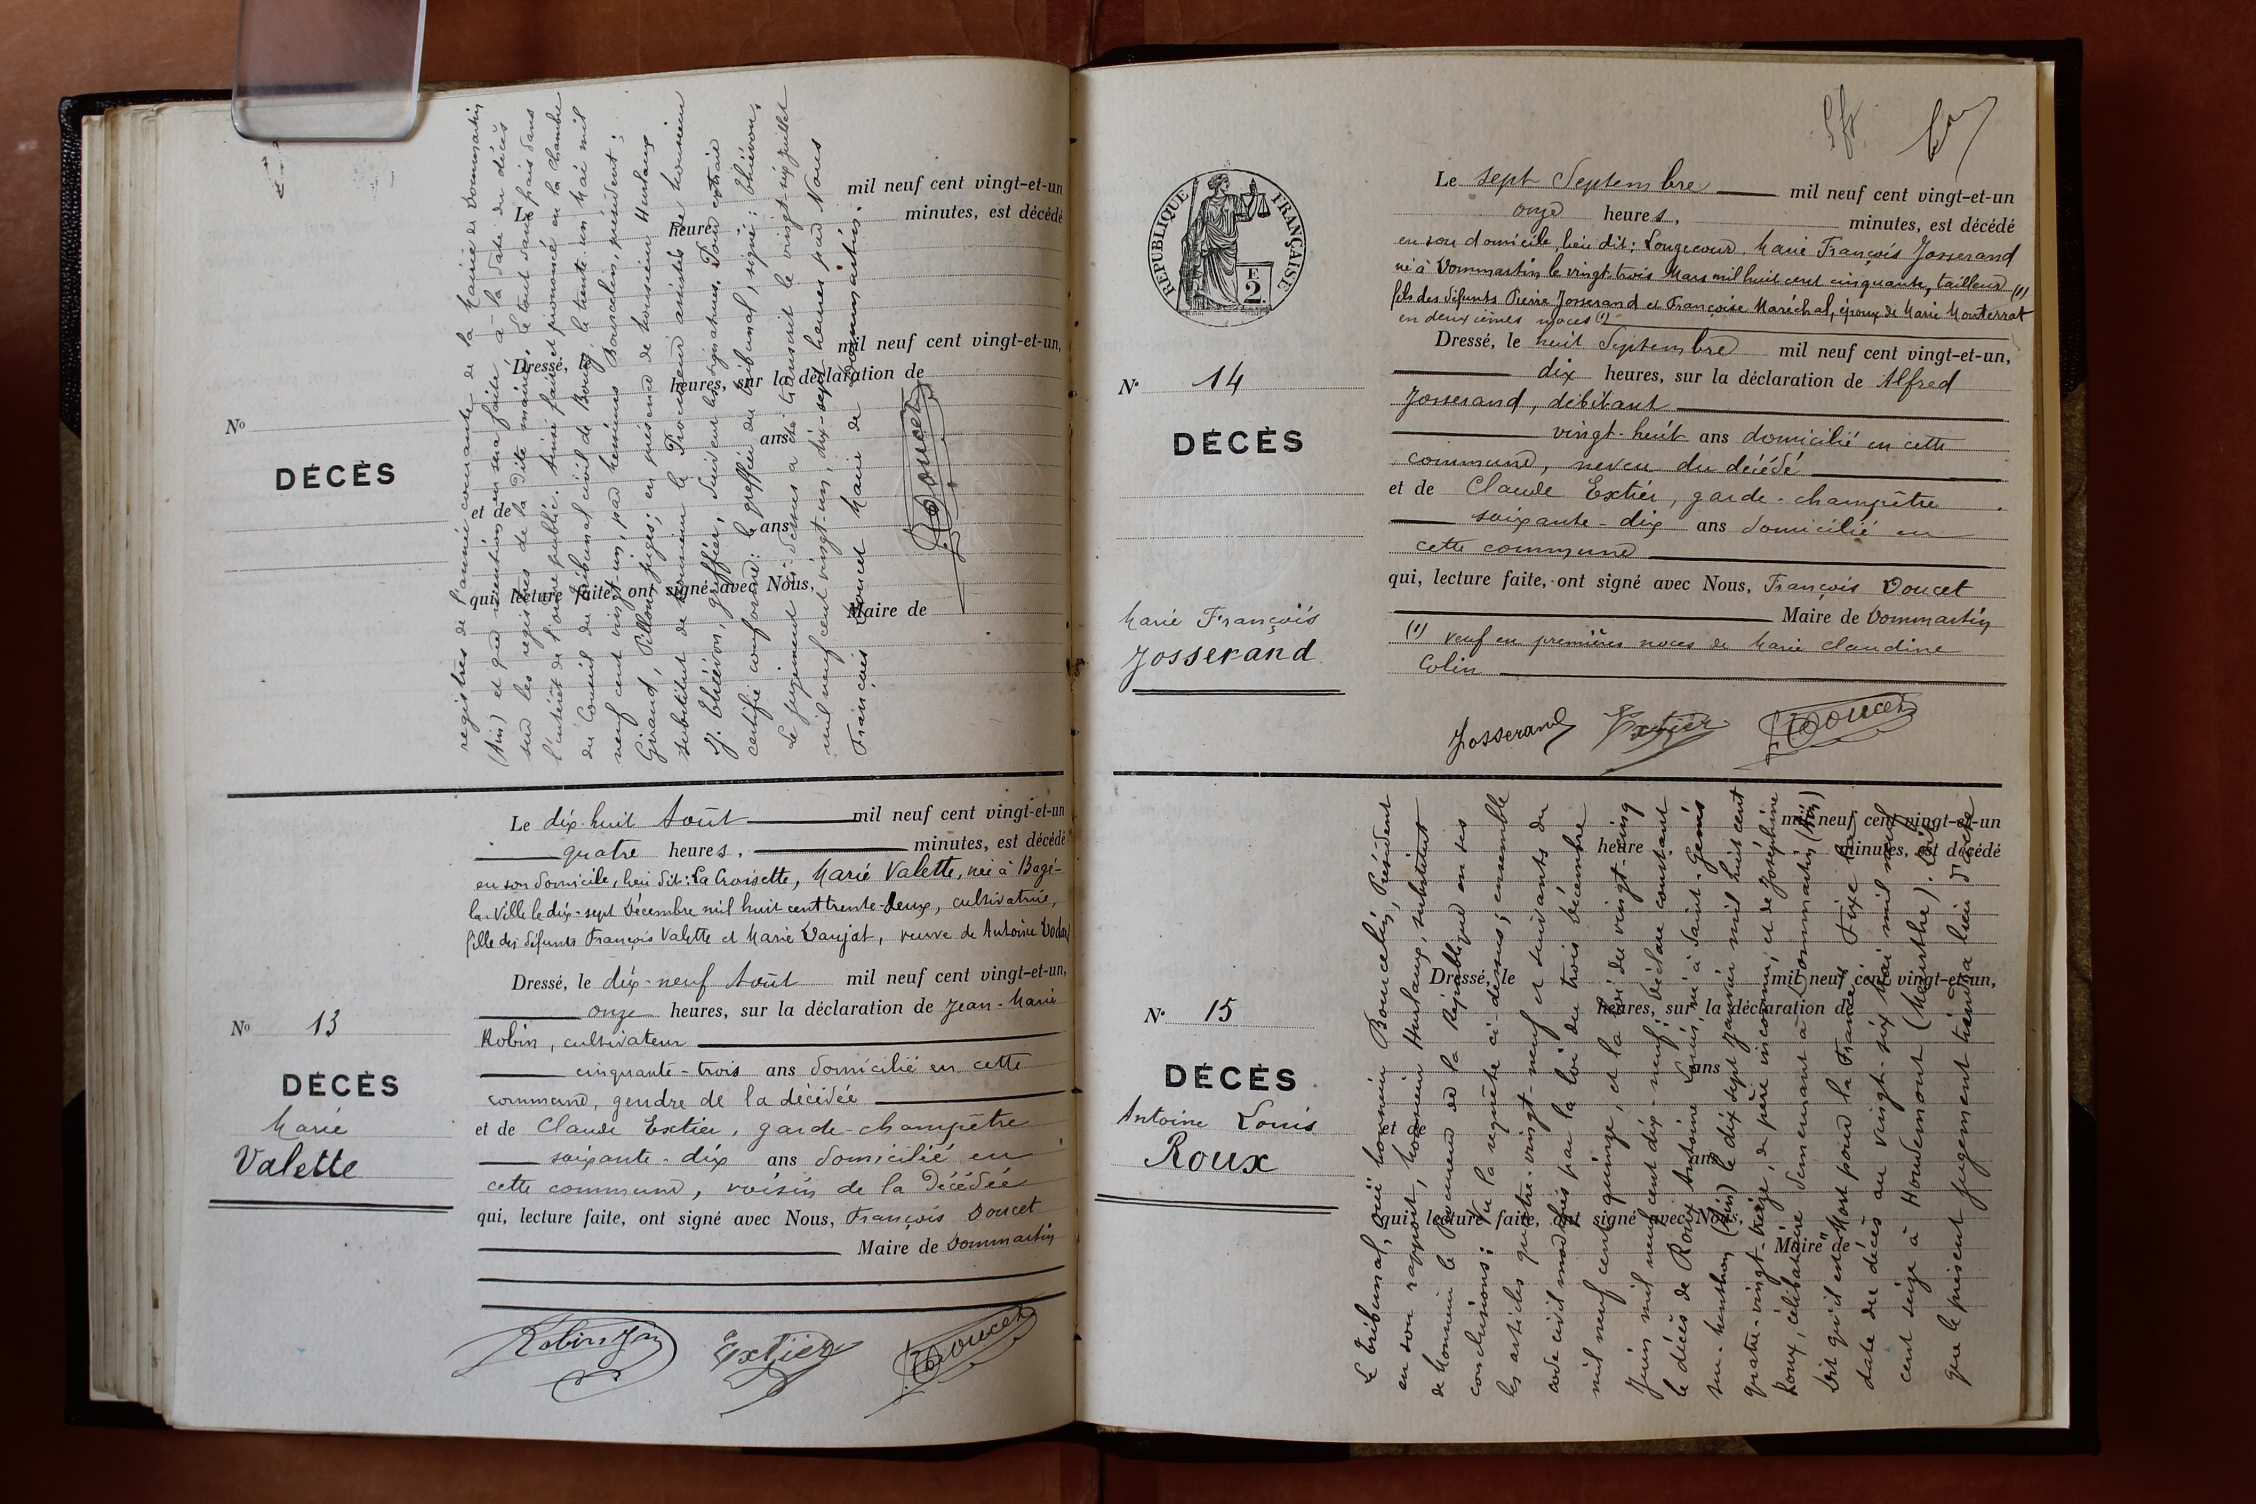 registres de l'année courante de la Mairie de Dommartin
(Ain) et que mention en sera faite à la date du décès
sur les registres de la dite mairie, le tout sans frais dans
l'intérêt de l'ordre public. Ainsi fait et prononcé en la chambre
du Conseil du tribunal civil de Bourg, le trente-un Mai mil
neuf cent vingt-un, par Messieurs Bourcelin, président;
Girand, Pillon, juges; en présence de Monsieur Hurlaux
substitut de Monsieur le Procureur assistés de Monsieur
greffier, Suivent les signatures. Pour extrait
certifié conforme: le greffier du tribunal, signé:
Le jugement ci-dessus a été transcrit le vingt-six juillet
mil neuf cent vingt-un, dix-sept heures par Nous
François Doucet Maire de Dommartin.
Doucet
Le
mil neuf cent vingt-et-un
heure
minutes, est décédé
Dressé, le
mil neuf cent vingt-et-un,
heures, sur la déclaration de
ans
et de
ans
qui, lecture faite, ont signé avec Nous,
Maire de
No
DÉCÈS
No 13
DÉCÈS
Marie
Valette
Le dix-huit Août mil neuf cent vingt-et-un
quatre heures, minutes, est décédé
en son domicile, lieu dit: La Croisette, Marie Valette, née à Bagé-
la-Ville le dix-sept Décembre mil huit cent trente-deux, cultivatrice,
fille des défunts François Valette et Marie Danjat, veuve de Antoine
Dressé, le dix-neuf Août mil neuf cent vingt-et-un,
onze heures, sur la déclaration de Jean-Marie
Robin, cultivateur
cinquante-trois ans domicilié en cette
commune, gendre de la décédée
et de Claude Extier, garde-champêtre
soixante-dix ans domicilié en
cette commune, voisin de la Décédée
qui, lecture faite, ont signé avec Nous, François Doucet
Maire de Dommartin
Robin Extier Doucet
REPUBLIQUE FRANÇAISE
E
2.
No 14
DÉCÈS
Marie François
Josserand
Le sept Septembre mil neuf cent vingt-et-un
onze heures, minutes, est décédé
en son domicile, lieu dit: Longecour Marie François Josserand
né à Dommartin le vingt-trois Mars mil huit cent cinquante, tailleur (1)
fils des défunts Pierre Josserand et Françoise Maréchal, époux de Marie Monterrat
en deuxièmes noces (1)
Dressé, le huit Septembre mil neuf cent vingt-et-un,
dix heures, sur la déclaration de Alfred
Josserand, débitant
vingt-huit ans domicilié en cette
commune, neveu du décédé
et de Claude Extier, garde-champêtre
soixante-dix ans domicilié en
cette commune
qui, lecture faite, ont signé avec Nous, François Doucet
Maire de Dommartin
(1) veuf en premières noces de Marie Claudine
Colin
Josserand Extier Doucet
No 15
DÉCÈS
Antoine Louis
Roux
Le tribunal, ouï Monsieur Bourcelin, Président
en son rapport, Monsieur Hurlaux, substitut
de Monsieur le Procureur de la République en ses
conclusions; Vu la requête ci-dessus; ensemble
les articles quatre-vingt-neuf et suivants du
code civil modifiés par la loi du trois Décembre
mil neuf cent quinze, et la loi du vingt-cinq
Juin mil neuf cent dix-neuf; Déclare constant
le décès de Roux Antoine Louis, né à Saint-Genis
sur-Menthon (Ain) le dix sept Janvier mil huit cent
quatre-vingt-treize, de père inconnu, et de Joséphine
Roux, célibataire demeurant à Dommartin (Ain)
Dit qu'il est "Mort pour la France", Fixe la
date du décès au vingt-six Mai mil neuf
cent seize à Houdemont (Meurthe). Dit
que le présent jugement tiendra lieu d'acte
mil neuf cent vingt-et-un
heure
minutes, est décédé
Dressé, le
mil neuf cent vingt-et-un,
heures, sur la déclaration de
ans
et de
ans
qui, lecture faite, ont signé avec Nous,
Maire de